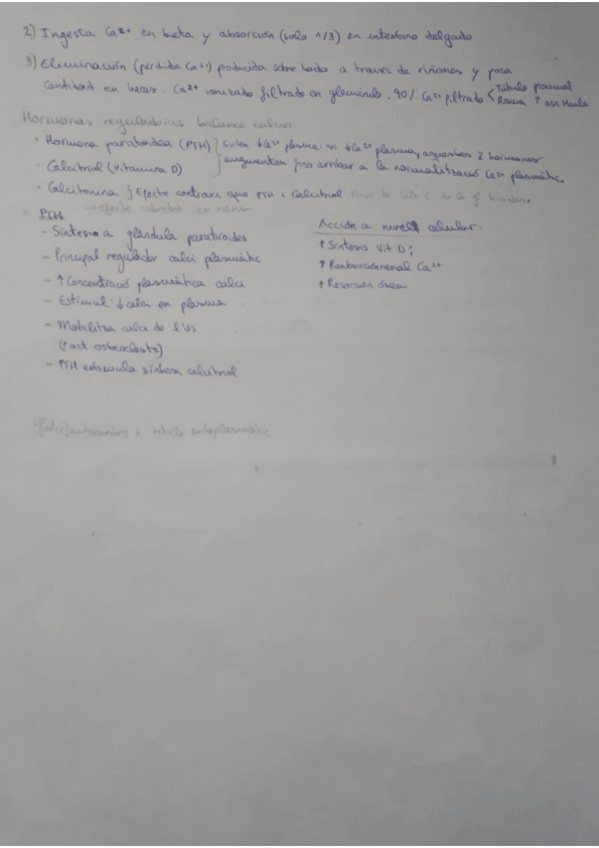 2) Ingesta Ca²⁺ en dieta y absorción (solo 1/3) en intestino delgado
3) Eliminación (pérdida Ca²⁺) producida sobre todo a través de riñones y poca
cantidad en heces. Ca²⁺ ionizado filtrado en glomérulo. 90% Ca²⁺ filtrado < Túbulo proximal
Rama ↑ asa Henle
Hormonas reguladoras balance calcio
· Hormona paratiroidea (PTH)
· Calcitriol (Vitamina D)
↓Ca²⁺ plasma, aquestes 2 hormones
augmenten fins arribar a la normalització Ca²⁺ plasmàtic.
· Calcitonina } Efecte contrari que PTH i Calcitriol.
PTH
- Síntesi a glándula paratiroides
- Principal regulador calci plasmàtic
- ↑ Concentració plasmàtica calci
- Estimul: ↓ calci en plasma
- Mobilitza calci de l'os
(↑act osteoclasts)
- PTH estimula síntesi calcitriol
Acción a nivel celular:
↑ Síntesis Vit D;
↑ Reabsorción renal Ca²⁺
↑ Resorsión ósea
reticle endoplasmàtic